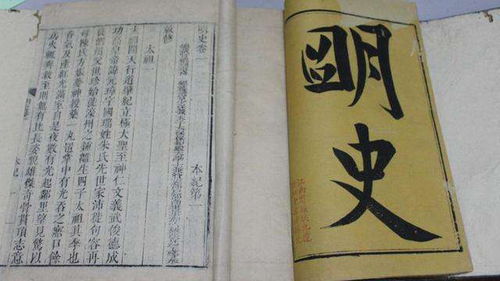 朙史
明史卷一
敕修
本紀第一
太祖一
太祖開天行道肇紀立極大聖至神仁文義武俊德成
功高皇帝諱元璋字國瑞姓朱氏先世家沛徙句容再
徙泗州父世珍始徙濠州之鍾離生四子太祖其季也
母陳氏方娠夢神授藥一丸置掌中有光吞之寤口餘
香氣及產紅光滿室自是夜數有光起鄰里望見驚以
為火輒奔救至則無有比長姿貌雄傑奇骨貫頂志意
本紀